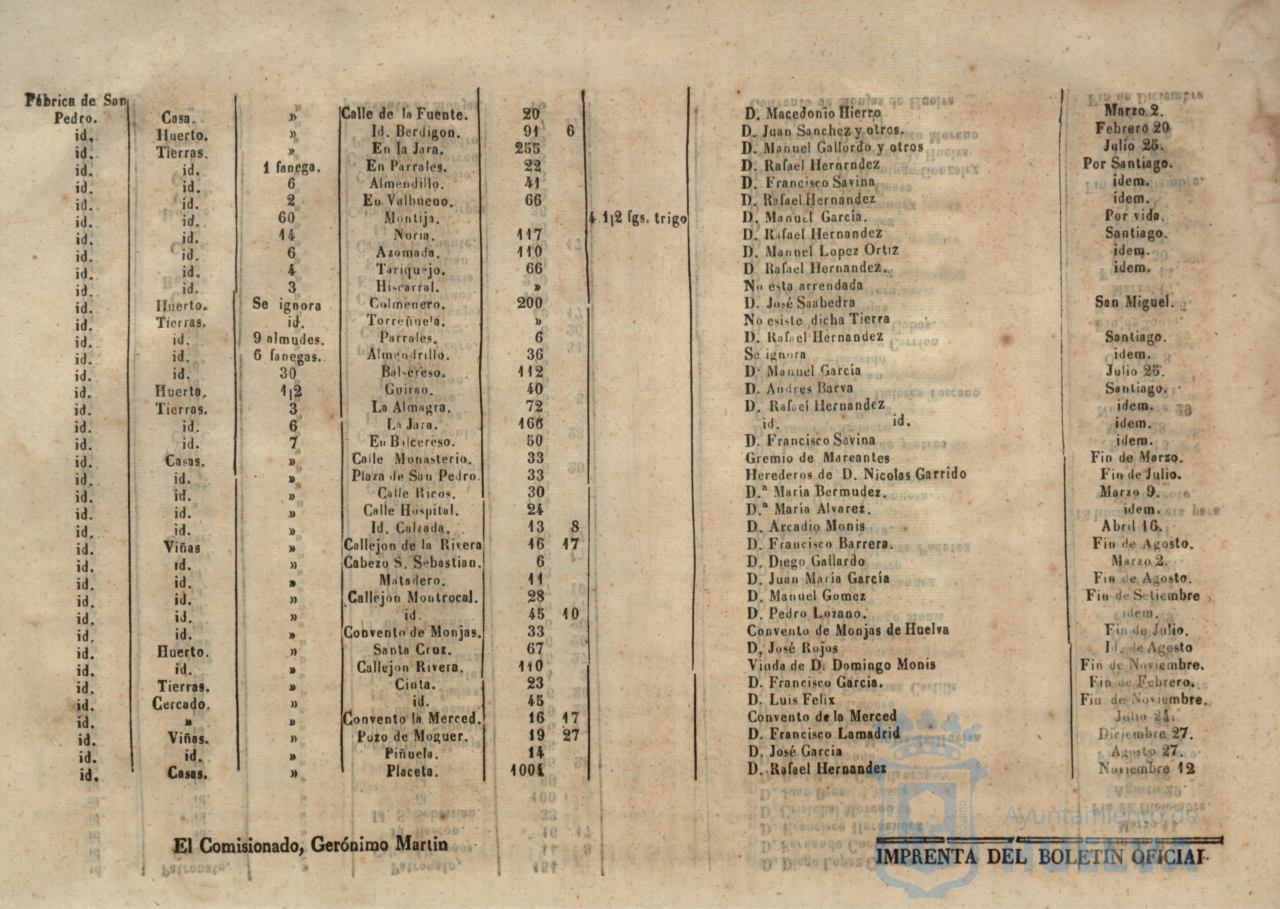 Fábrica de San
Pedro. Casa. » Calle de la Fuente. 20 D. Macedonio Hierro Marzo 2.
id. Huerto. » Id. Berdigon. 91 6 D. Juan Sanchez y otros. Febrero 20
id. Tierras. » En la Jara. 255 D. Manuel Gallordo y otros Julio 25.
id. id. 1 fanega. En Parrales. 22 D. Rafael Herornd ez Por Santiago.
id. id. 6 Almendillo. 41 D. Francisco Savina idem.
id. id. 2 En Valbueno. 66 D. Rafael Hernandez idem.
id. id. 60 Montija. 4 1|2 fgs. trigo D. Manuel García. Por vida.
id. id. 14 Noria. 117 D. Rafael Hernandez Santiago.
id. id. 6 Azomada. 110 D. Manuel Lopez Ortiz idem.
id. id. 4 Tariquejo. 66 D. Rafael Hernandez. idem.
id. id. 3 Hiscarral. » No esta arrendada
id. Huerto. Se ignora Colmenero. 200 D. José Saabedra San Miguel.
id. Tierras. id. Torreñuela. » No esiste dicha Tierra
id. id. 9 almudes. Parrales. 6 D. Rafael Hernandez Santiago.
id. id. 6 fanegas. Almendrillo. 36 Se ignora idem.
id. id. 30 Balcereso. 112 D. Manuel García Julio 25.
id. Huerta. 1|2 Guirao. 40 D. Andres Barva Santiago.
id. Tierras. 3 La Almagra. 72 D. Rafael Hernandez idem.
id. id. 6 La Jara. 166 id. id. idem.
id. id. 7 En Bilcereso. 50 D. Francisco Savina idem.
id. Casas. » Calle Monasterio. 33 Gremio de Mareantes Fin de Marzo.
id. id. » Plaza de San Pedro. 33 Herederos de D. Nicolas Garrido Fin de Julio.
id. id. » Calle Ricos. 30 D.ª María Bermudez. Marzo 9.
id. id. » Calle Hospital. 24 D.ª María Alvarez. idem.
id. id. » Id. Calzada. 13 8 D. Arcadio Monis Abril 16.
id. Viñas » Callejon de la Rivera 16 17 D. Francisco Barrera. Fin de Agosto.
id. id. » Cabezo S. Sebastian. 6 D. Diego Gallardo Marzo 2.
id. id. » Matadero. 11 D. Juan María García Fin de Agosto.
id. id. » Callejon Montrocal. 28 D. Manuel Gomez Fin de Setiembre
id. id. » id. 45 10 D. Pedro Lozano. idem.
id. id. » Convento de Monjas. 33 Convento de Monjas de Huelva Fin de Julio.
id. Huerto. » Santa Cruz. 67 D. José Rojos Id. de Agosto
id. id. » Callejon Rivera. 110 Viuda de D. Domingo Monis Fin de Noviembre.
id. Tierras. » Cinta. 23 D. Francisco García. Fin de Febrero.
id. Cercado. » id. 45 D. Luis Felix Fin de Noviembre.
id. » » Convento la Merced. 16 17 Convento de la Merced Julio 24.
id. Viñas. » Pozo de Moguer. 19 27 D. Francisco Lamadrid Diciembre 27.
id. id. » Piñuela. 14 D. José Garcia Agosto 27.
id. Casas. » Placeta. 1001 D. Rafael Hernandez Noviembre 12
El Comisionado, Gerónimo Martin
Ayuntamiento de
HUELVA
IMPRENTA DEL BOLETIN OFICIAL